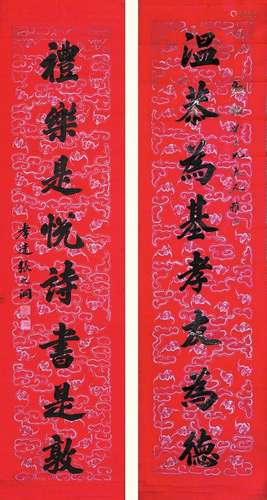 溫恭為基孝友為德
禮樂是悅詩書是敦
孝達張之洞